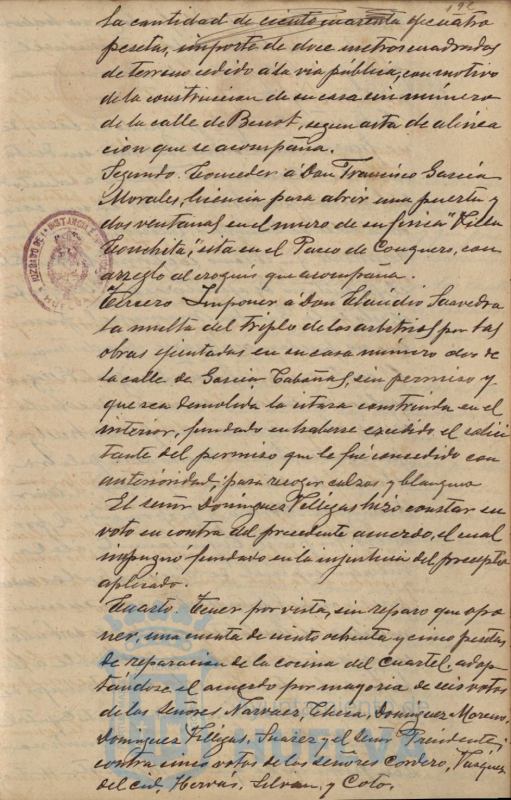 192
la cantidad de ciento cuarenta y cuatro
pesetas, importe de doce metros cuadrados
de terreno cedido á la via pública, con motivo
de la construccion de su casa sin número
de la calle de Benot, segun acta de alinea
cion que se acompaña.
Segundo. Conceder á Don Francisco García
Morales, licencia para abrir una puerta y
dos ventanas en el muro de su finca "Villa
Conchita", sita en el Paseo de Conquero, con
arreglo al croquis que acompaña.
Tercero Imponer á Don Claudio Saavedra
la multa del triplo de los arbitrios por las
obras ejecutadas en su casa número dos de
la calle de Garcia Cabañas, sin permiso y
que sea demolida la construida en el
interior, fundado en haberse excedido el solici
tante del permiso que le fué concedido con
anterioridad, para recoger calzos y blanqueo
El señor Dominguez Villegas hizo constar su
voto en contra del precedente acuerdo, el cual
impugnó fundado en la injusticia del precepto
aplicado.
Cuarto. Tener por vista, sin reparo que opo
ner, una cuenta de ciento ochenta y cinco pesetas
de reparacion de la cocina del cuartel, adop
tándose el acuerdo por mayoria de seis votos
de los Señores Narvaez, Checa, Dominguez Moreno,
Dominguez Villegas, Suarez y el Señor Presidente,
contra cinco votos de los señores Cordero, Vazquez
del Cid, Hervás, Silvan, y Coto.
JUZGADO DE 1ª INSTANCIA
HUELVA